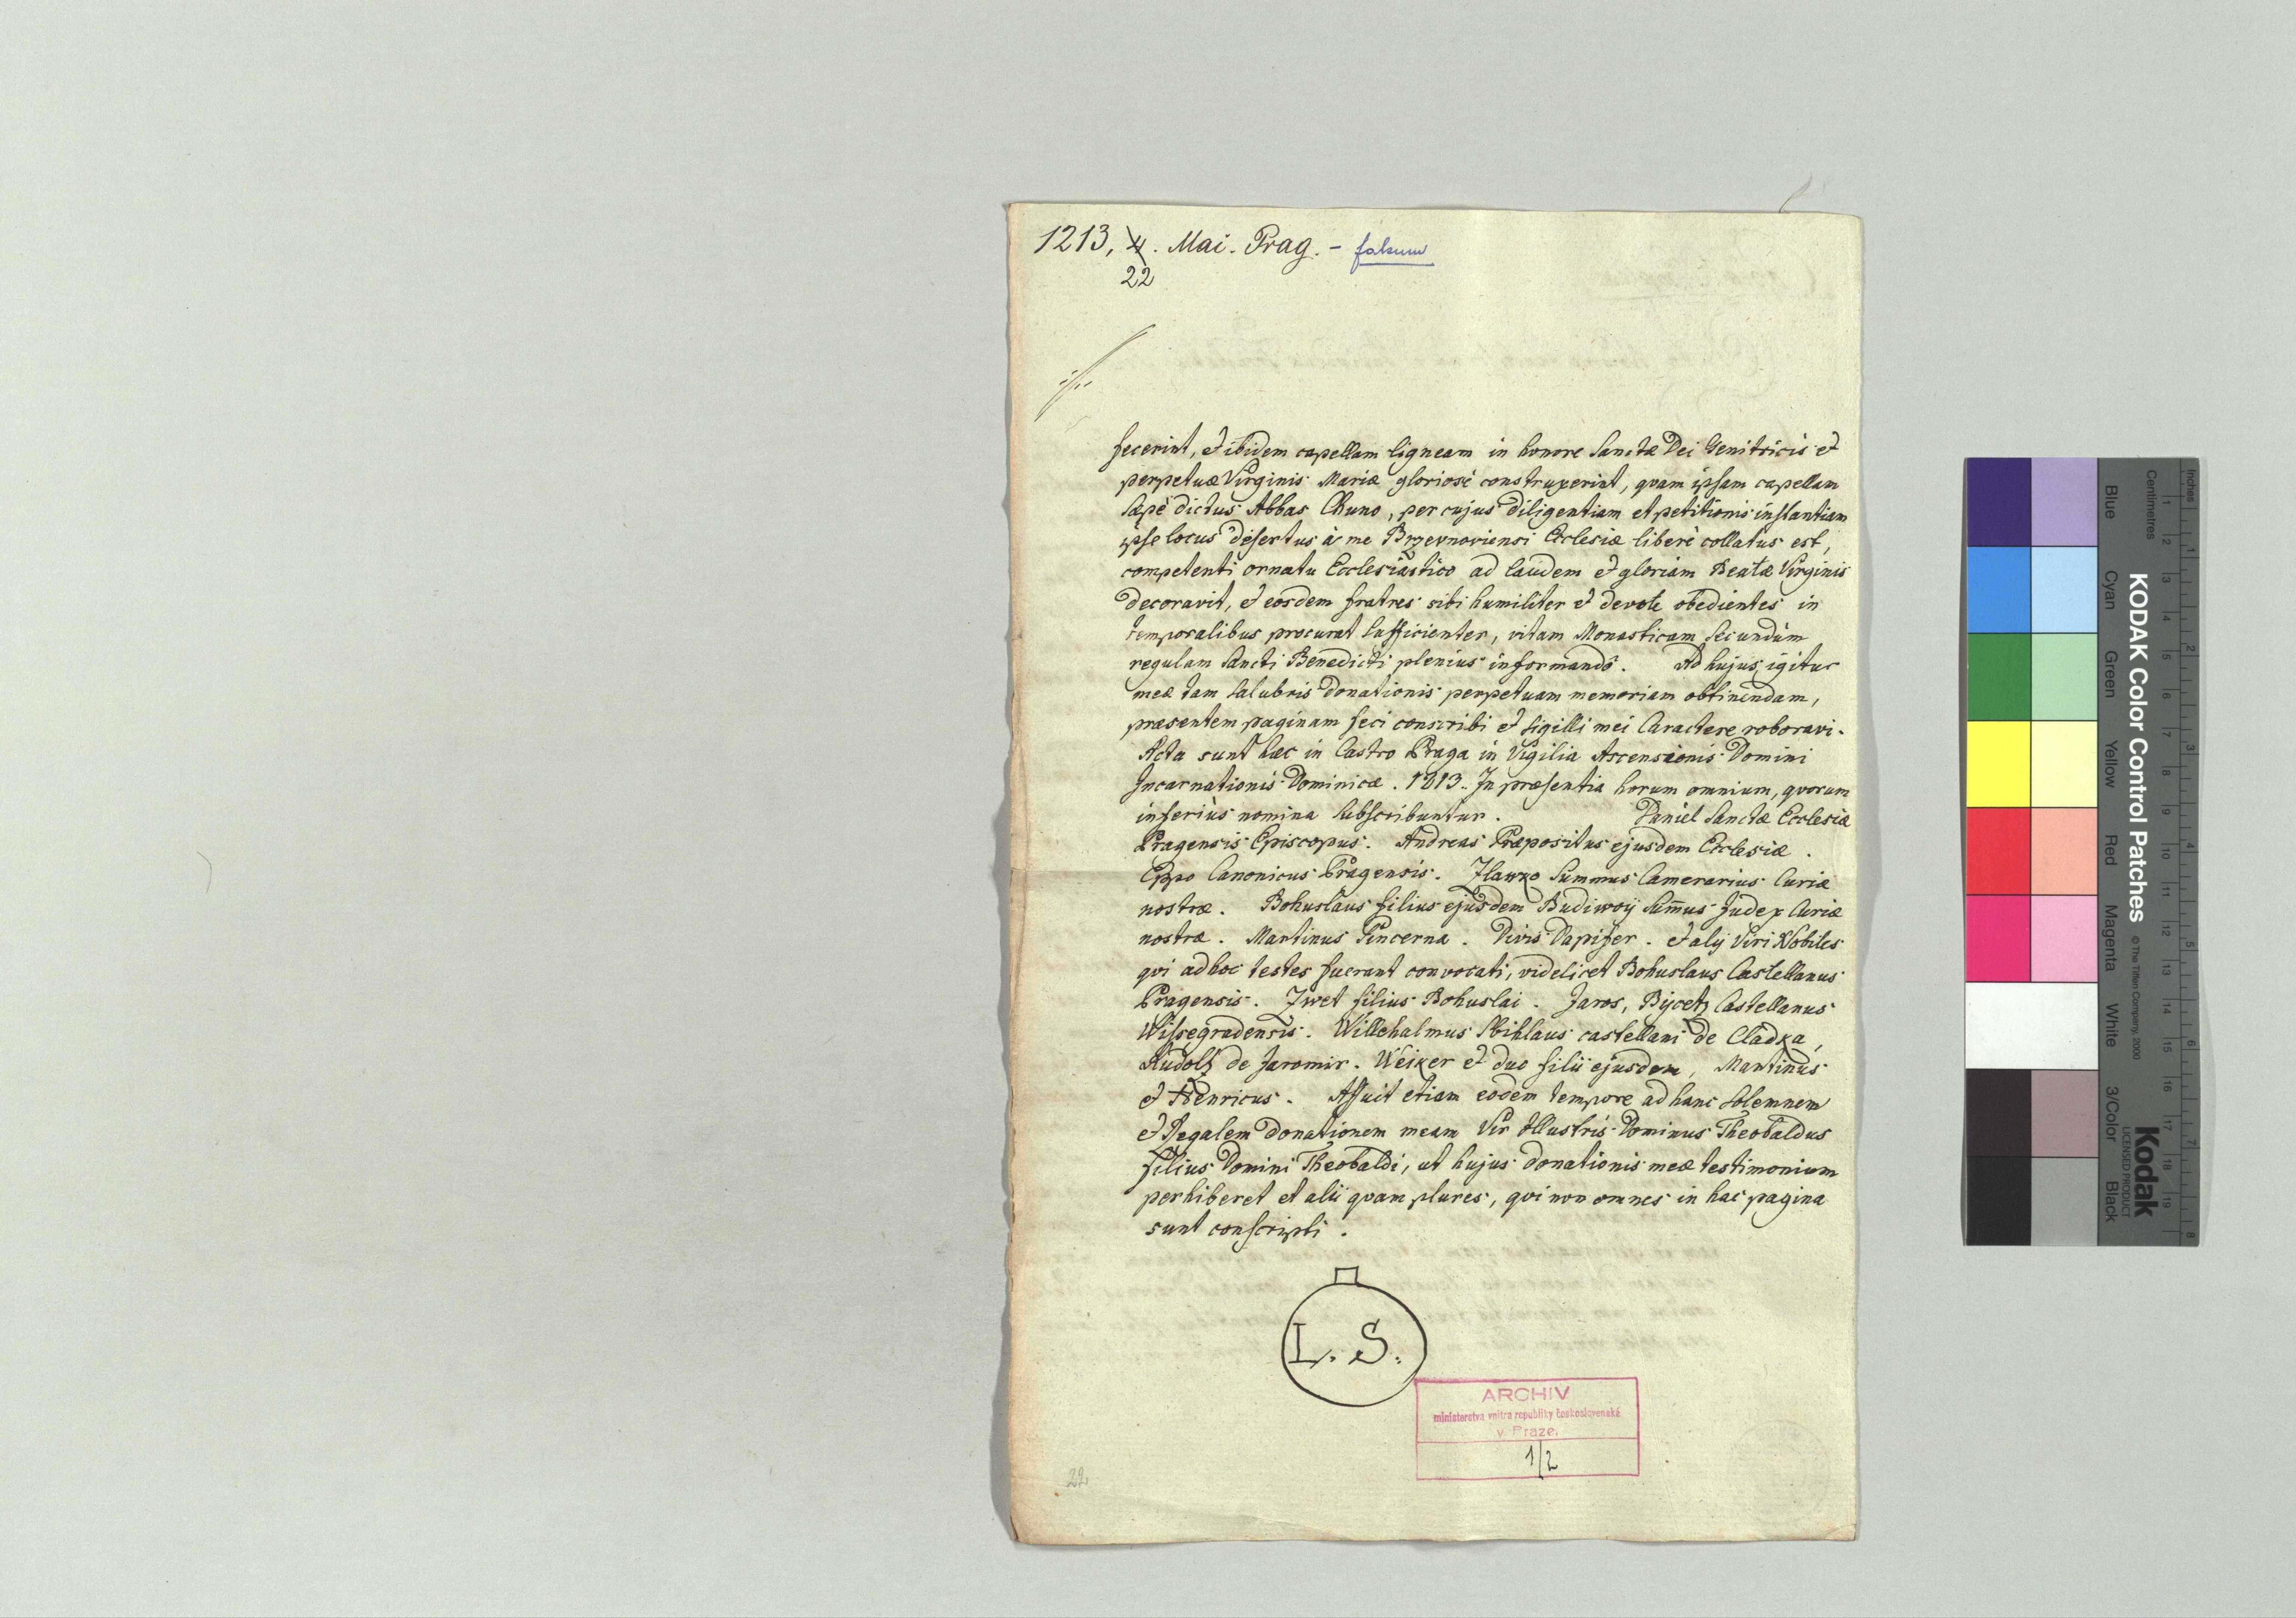 1213, 4. Mai. Prag. - falsum
22
fecerint, et ibidem capellam ligneam in honore Sanctæ Dei Genitricis et
perpetuæ Virginis Mariæ gloriosè construxerint, qvam ipsam capellam
sæpè dictus Abbas Chuno, per cujus diligentiam et petitionis instantiam
ipse locus desertus à me Brzevnoviensi Ecclesiæ liberè collatus est,
competenti ornatu Ecclesiastico ad laudem et gloriam Beatæ Virginis
decoravit, et eosdem fratres sibi humiliter et devote obedientes in
temporalibus procurat sufficienter, vitam Monasticam secundùm
regulam Sancti Benedicti plenius informandô. Ad hujus igitur
meæ tam salubris donationis perpetuam memoriam obtinendam,
præsentem paginam feci conscribi et sigilli mei Caractere roboravi.
Acta sunt hæc in Castro Praga in Vigilia Ascensionis Domini
Incarnationis Dominicæ. 1213. In præsentia horum omnium, qvorum
inferiùs nomina subscribuntur. Daniel Sanctæ Ecclesiæ
Pragensis Episcopus. Andreas Præpositus ejusdem Ecclesiæ.
Eppo Canonicus Pragensis. Zlawko Summus Camerarius Curiæ
nostræ. Bohuslaus filius ejusdem Budiwoÿ Sum̄us Judex Curiæ
nostræ. Martinus Pincerna. Divis Dapifer. et alÿ Viri Nobiles
qvi ad hoc testes fuerant convocati, videlicet Bohuslaus Castellanus
Pragensis. Zwet filius Bohuslai. Jaros, Bÿcetz Castellanus
Wissegradensis. Willehalmus Sbihlaus castellani de Cladka,
Rudolf de Jaromir. Weiker et duo filii ejusdem, Martinus
et Henricus. Affuit etiam eodem tempore ad hanc solemnem
et Regalem donationem meam Vir Illustris Dominus Theobaldus
filius Domini Theobaldi, ut hujus donationis meæ testimonium
perhiberet et alii qvam plures, qvi non omnes in hac pagina
sunt conscripti.
L. S.
ARCHIV
ministerstva vnitra republiky československá
v Praze.
1/2
22
KODAK Color Control Patches
© The Tiffen Company, 2000
Kodak
LICENSED PRODUCT
Inches
Centimetres
Blue
Cyan
Green
Yellow
Red
Magenta
White
3/Color
Black